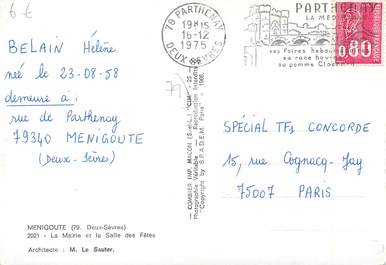 6 €
BELAIN Hélène
née le 23-08-58
demeure à :
rue de Parthenay
79340 MENIGOUTE
(Deux-Sèvres)
79)
79 PARTHENAY
19H15
16-12
1975
DEUX-SÈVRES
PARTHENAY
LA MÉDIÉVALE
ses Foires hebdomadaires
sa race bovine
sa pomme Clochard
0,80
COMBIER IMP. MACON (S.-et-L.) "CIM"
Photographie Véritable - Reproduction Interdite
Copyright by S.P.A.D.E.M. Paris 1968.
SPÉCIAL TF1 CONCORDE
15, rue Cognacq-Jay
75007 PARIS
MENIGOUTE (79. Deux-Sèvres)
2021 - La Mairie et la Salle des Fêtes
Architecte : M. Le Sauter.